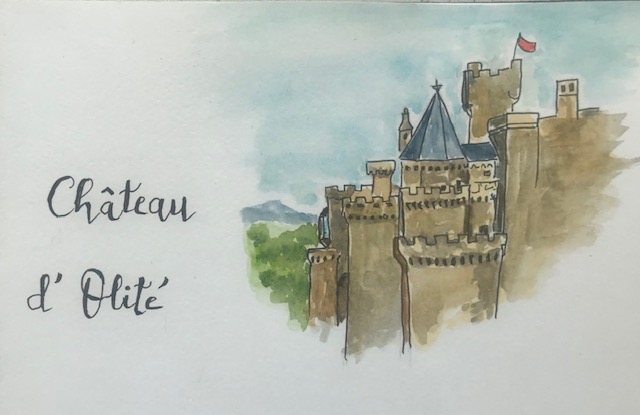 Château
d' Olité